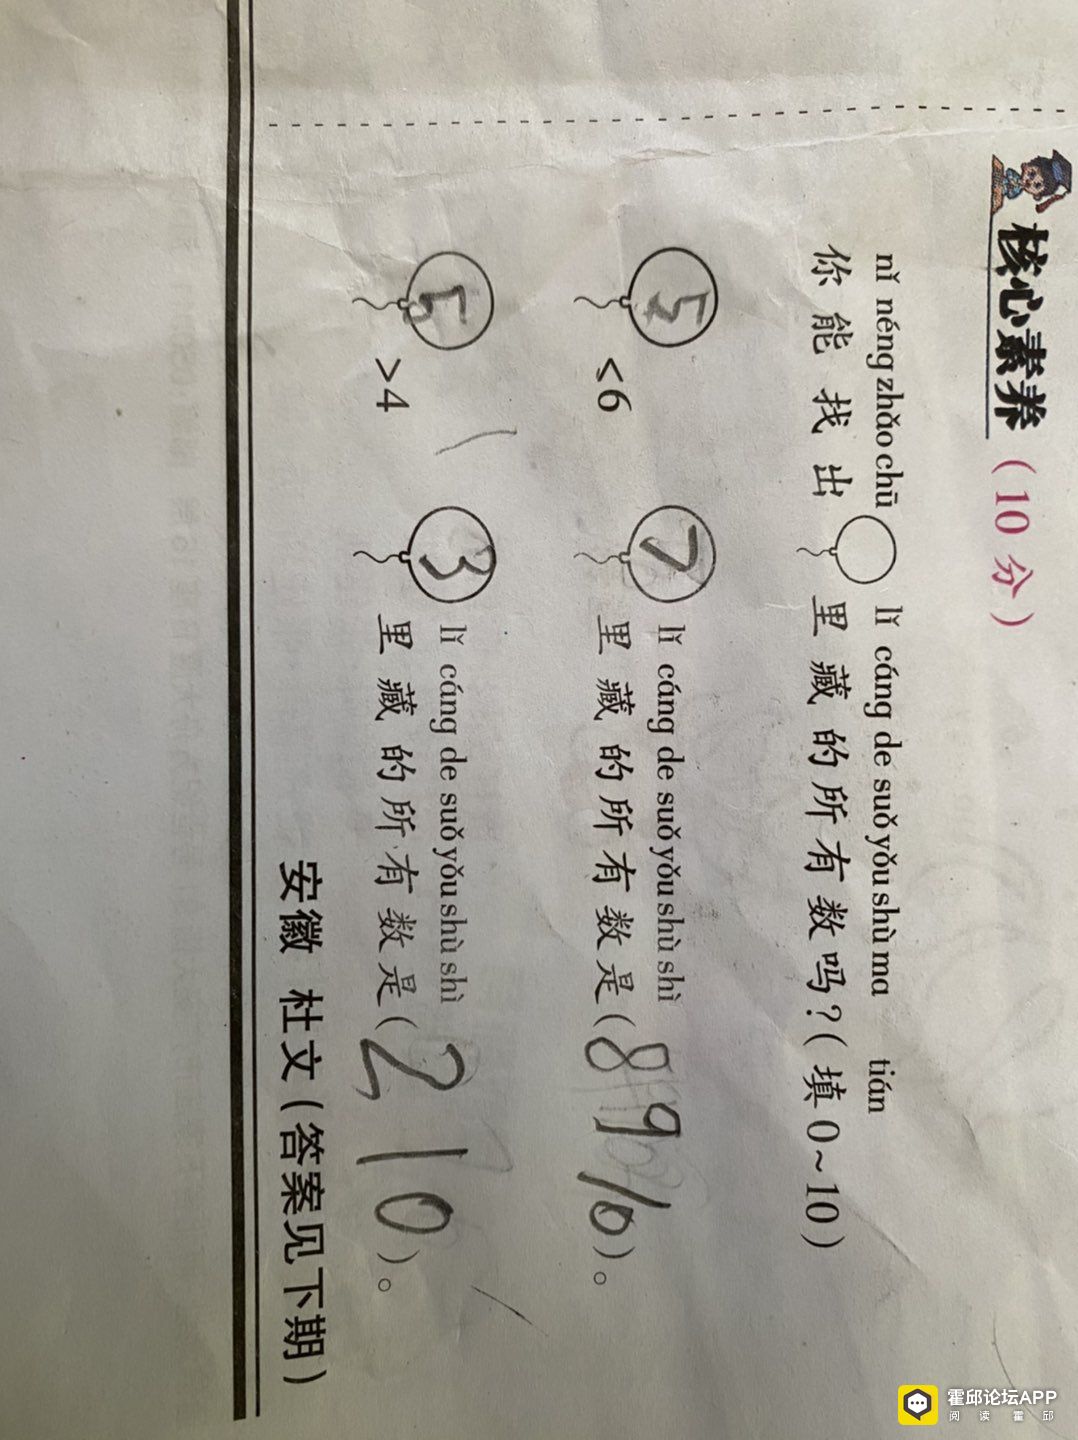 核心素养（10 分）
nǐ néng zhǎo chū lǐ cáng de suǒ yǒu shù ma tián
你能找出 里藏的所有数吗?(填 0~10)
lǐ cáng de suǒ yǒu shù shì
5 <6 7 里藏的所有数是(8 9 10)。
lǐ cáng de suǒ yǒu shù shì
5 >4 3 里藏的所有数是(2 1 0)。
安徽 杜文(答案见下期)
霍邱论坛APP
阅读霍邱